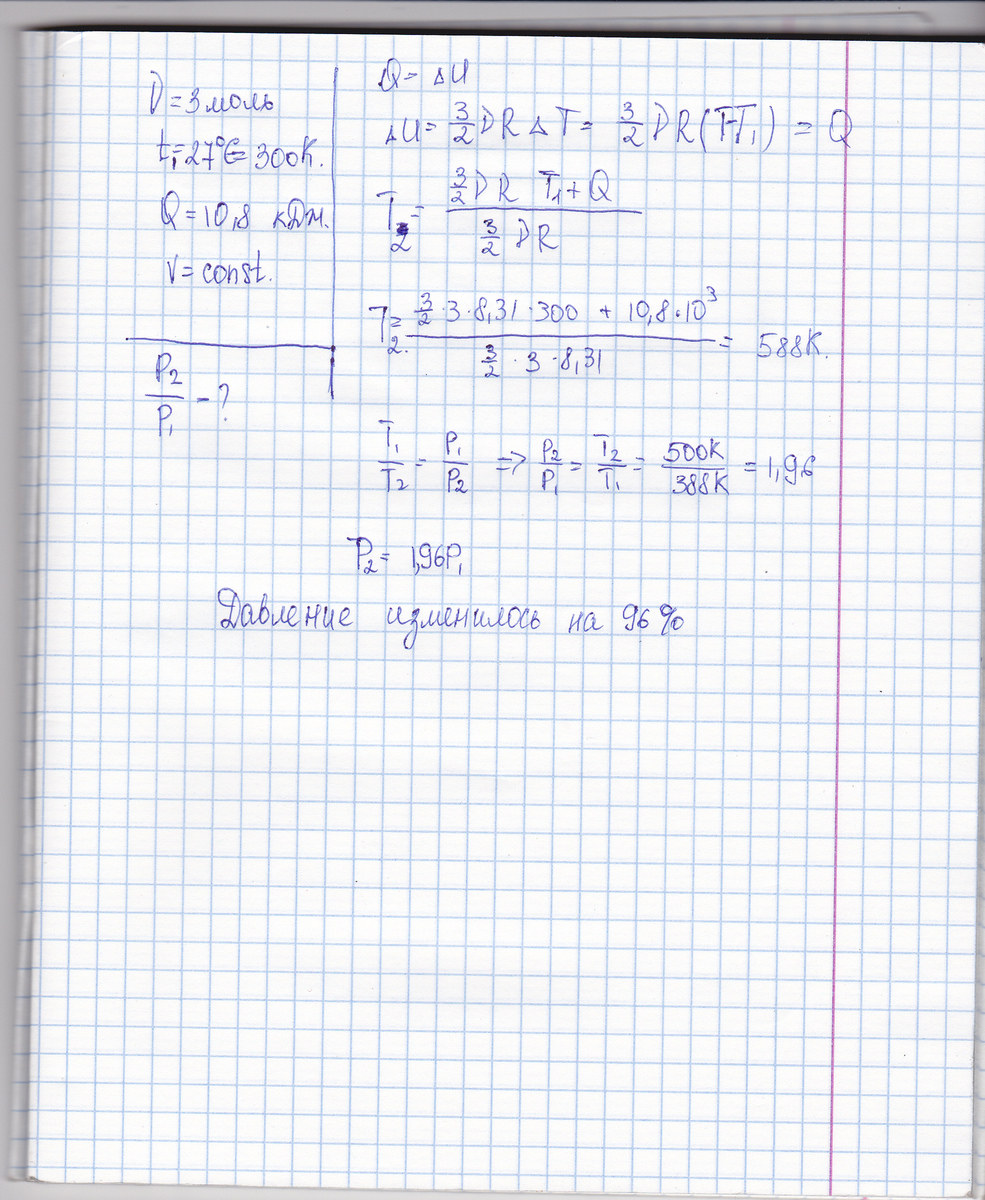 D = 3 моль
t₁ = 27°C = 300K.
Q = 10,8 кДж.
V = const.
P₂/P₁ - ?
Q = ΔU
ΔU = 3/2 DRΔT = 3/2 DR(T-T₁) = Q
T₂ = (3/2 DR T₁ + Q)/(3/2 DR)
T₂ = (3/2 · 3 · 8,31 · 300 + 10,8 · 10³)/(3/2 · 3 · 8,31) = 588K.
T₁/T₂ = P₁/P₂ => P₂/P₁ = T₂/T₁ = 500K/388K = 1,96
P₂ = 1,96P₁
Давление изменилось на 96%